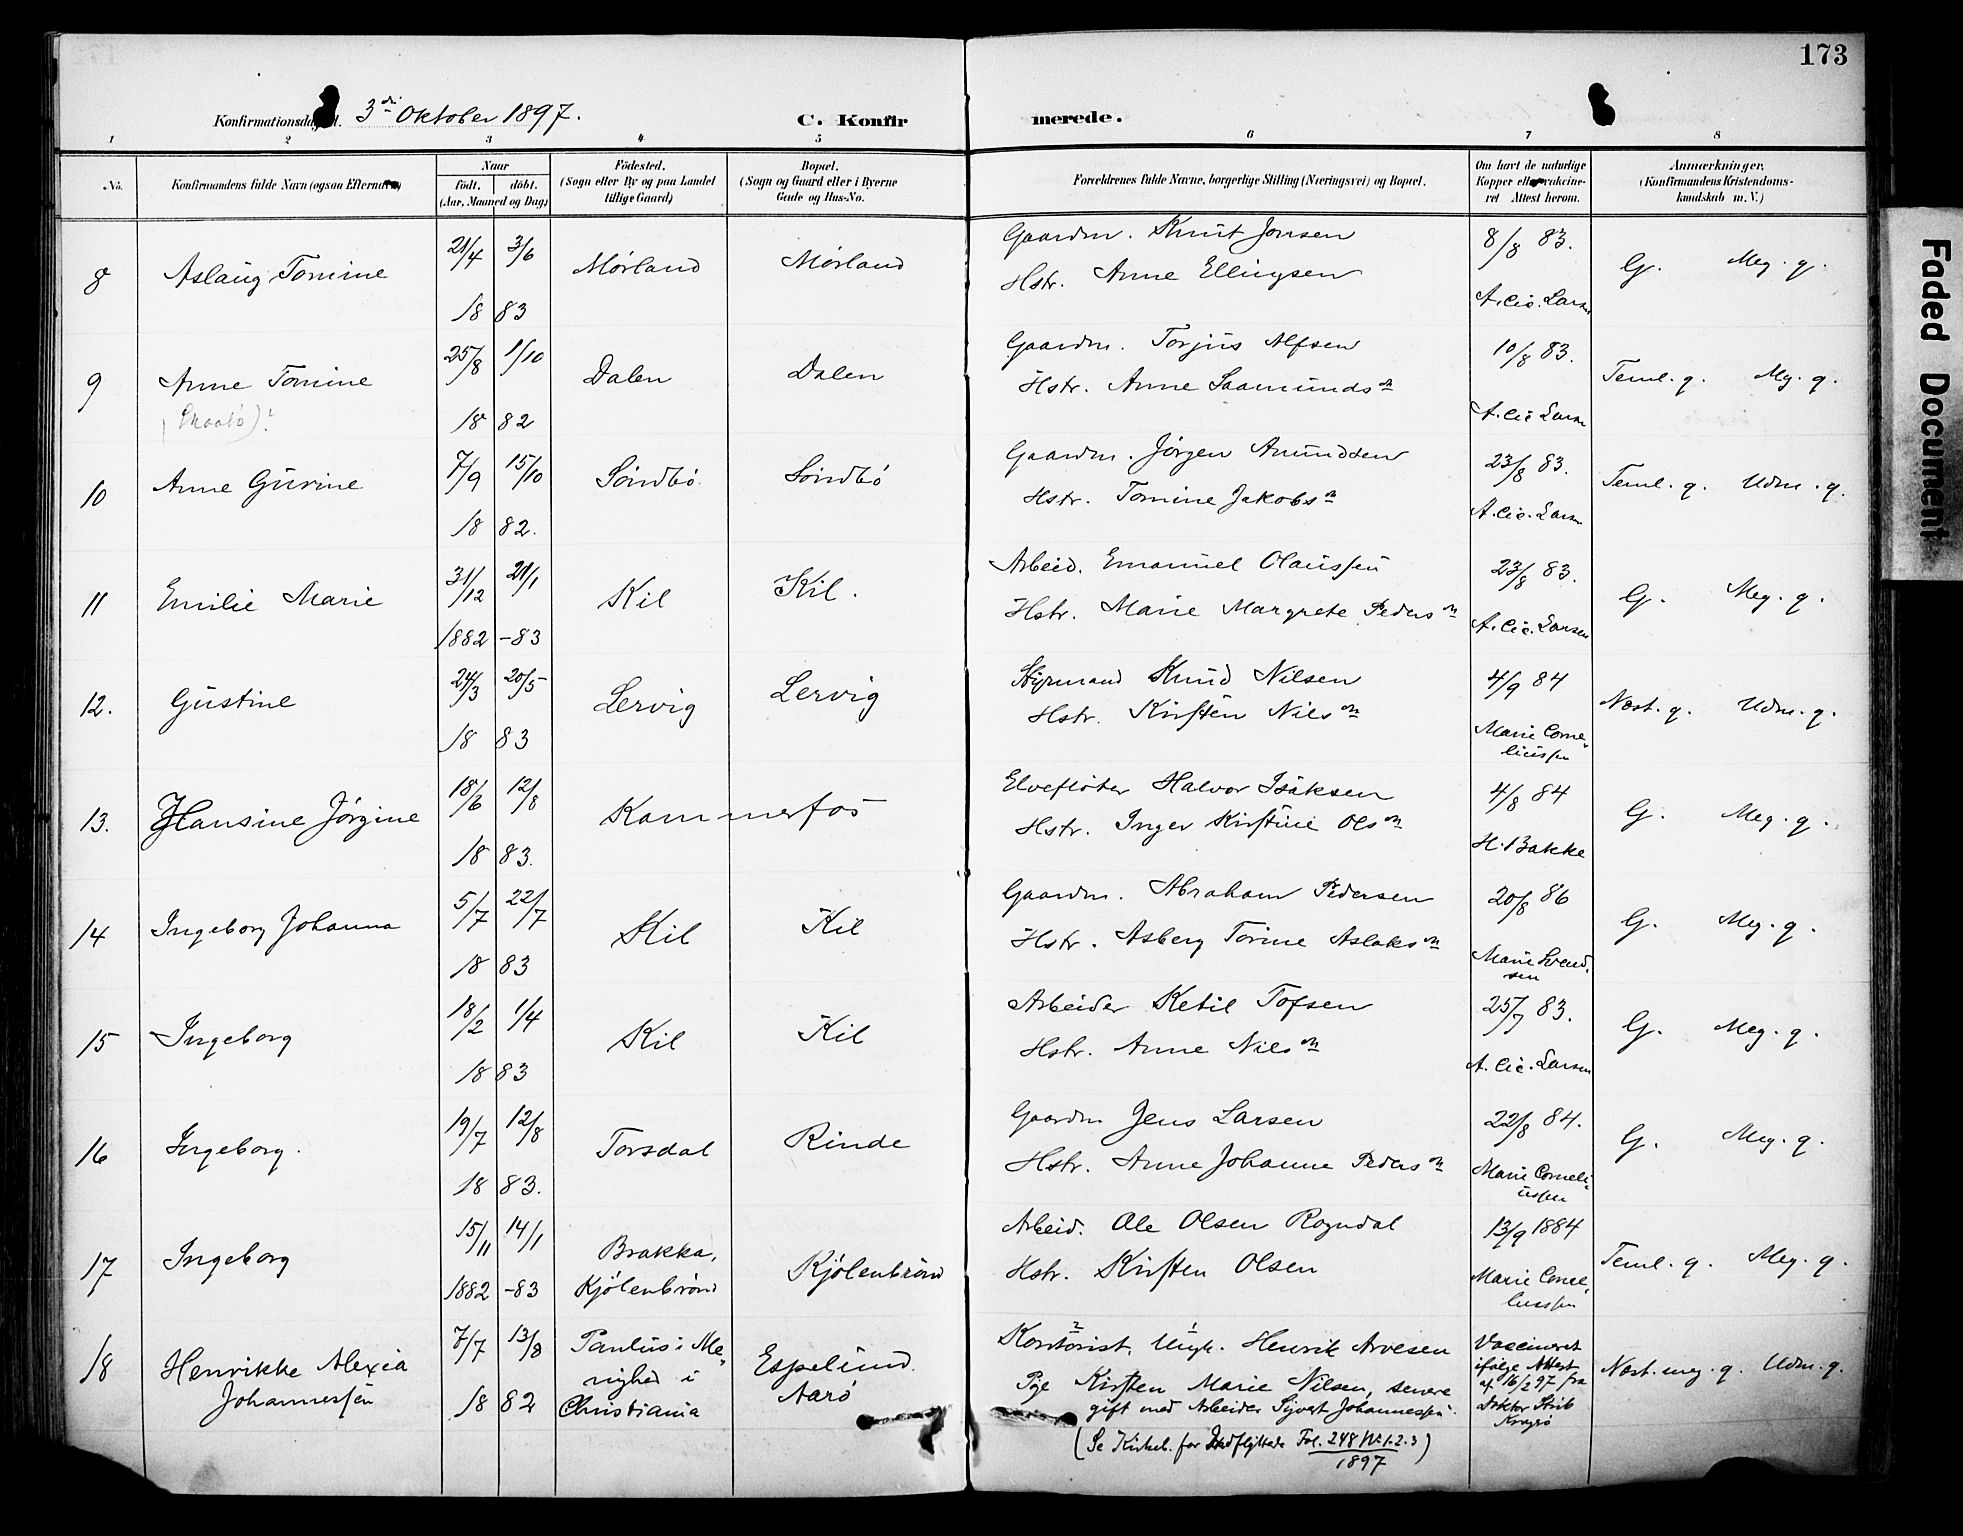 173
Konfirmationsdag 3die Oktober 1897.
C. Konfirmerede.
1 2 3 4 5 6 7 8
No. Konfirmandens fulde Navn (ogsaa Efternavn) Naar född. döbt. (Aar, Maaned og Dag) Födested. (Sogn eller By og paa Landet tillige Gaard) Bopæl. (Sogn og Gaard eller i Byerne Gade og Hus-No. Forældrenes fulde Navne, borgerlige Stilling (Næringsvei) og Bopæl. Om havt de naturlige Kopper eller vakcineret Attest herom. Anmærkninger, (Konfirmandens Kristendomskundskab m. V.)
8 Aslaug Tomine 21/4 3/6 Mørland Mørland Gaardm. Knut Jonsen 8/8 83. G. Meg. g.
18 83 Hstr. Anne Ellingsen A. Cic. Larsen
9 Anne Tomine 25/8 1/10 Dalen Dalen Gaardm. Torjus Alfsen 10/8 83. Teml. g. Mg. g.
(Skaatö)? 18 82 Hstr. Anne Saamundsn A. Cic Larsn
10 Anne Gurine 7/9 15/10 Söndbö. Söndbö Gaardm. Jörgen Amundsen 23/8 83. Teml. g. Udm. g.
18 82. Hstr. Tomine Jakobsn A. Cic. Larsn
11 Emilie Marie 31/12 21/1 Kil Kil. Arbeid. Emanuel Olaussen 23/8 83. G. Meg. g.
1882 -83 Hstr. Marie Margrete Pedersn A. Cic. Larsen
12. Gustine 24/3 20/5 Lervig Lervig Styrmand Knud Nilsen 4/9 84 Næst. g. Udm. g.
18 83 Hstr. Kirsten Nilsn Marie Corneliussen
13. Hansine Jörgine 18/6 12/8 Kammerfos Elveflöter Halvor Isaksen 4/8 84 G. Meg. g.
18 83. Hstr. Inger Kirstine Olsn H. Bakke
14 Ingeborg Johanna 5/7 22/7 Kil Kil Gaardm. Abraham Pedersen 20/8 86 G. Meg. g.
18 83 Hstr. Asberg Torine Aslaksn Marie Svendsen
15 Ingeborg 18/2 1/4 Kil Kil Arbeider Ketil Tofsen 25/7 83. G. Meg. g.
18 83 Hstr. Anne Nilsn A. Cic. Larsen
16 Ingeborg. 19/7 12/8 Torsdal Rinde Gaardm Jens Larsen 22/8 84. G. Meg. g.
18 83. Hstr. Anne Johanne Pedersn Marie Corneliussen
17 Ingeborg 15/11 14/1 Brakka, Kjölenbrönd Kjölenbrönd Arbeid. Ole Olsen Rogndal 13/9 1884 Teml. g. Meg. g.
1882 -83 Hstr. Kirsten Olsen Marie Corneliussen
18 Henrikke Alexia Johannessen 7/7 13/8 Paulus: Menighed i Christiania Espelund Aarö Kontorist, Ungk. Henrik Arvesen Vaccineret ifölge Attest af 16/2 97 fra Doktor Kragerö Næst. meg. g. Udm. g.
18 82 Pige Kirsten Marie Nilsen, senere
gift med Arbeider Sivert Johannessen.
(Se Kirkeb. for Indflyttede Fol. 248 No 1. 2. 3 1897)
Faded Document